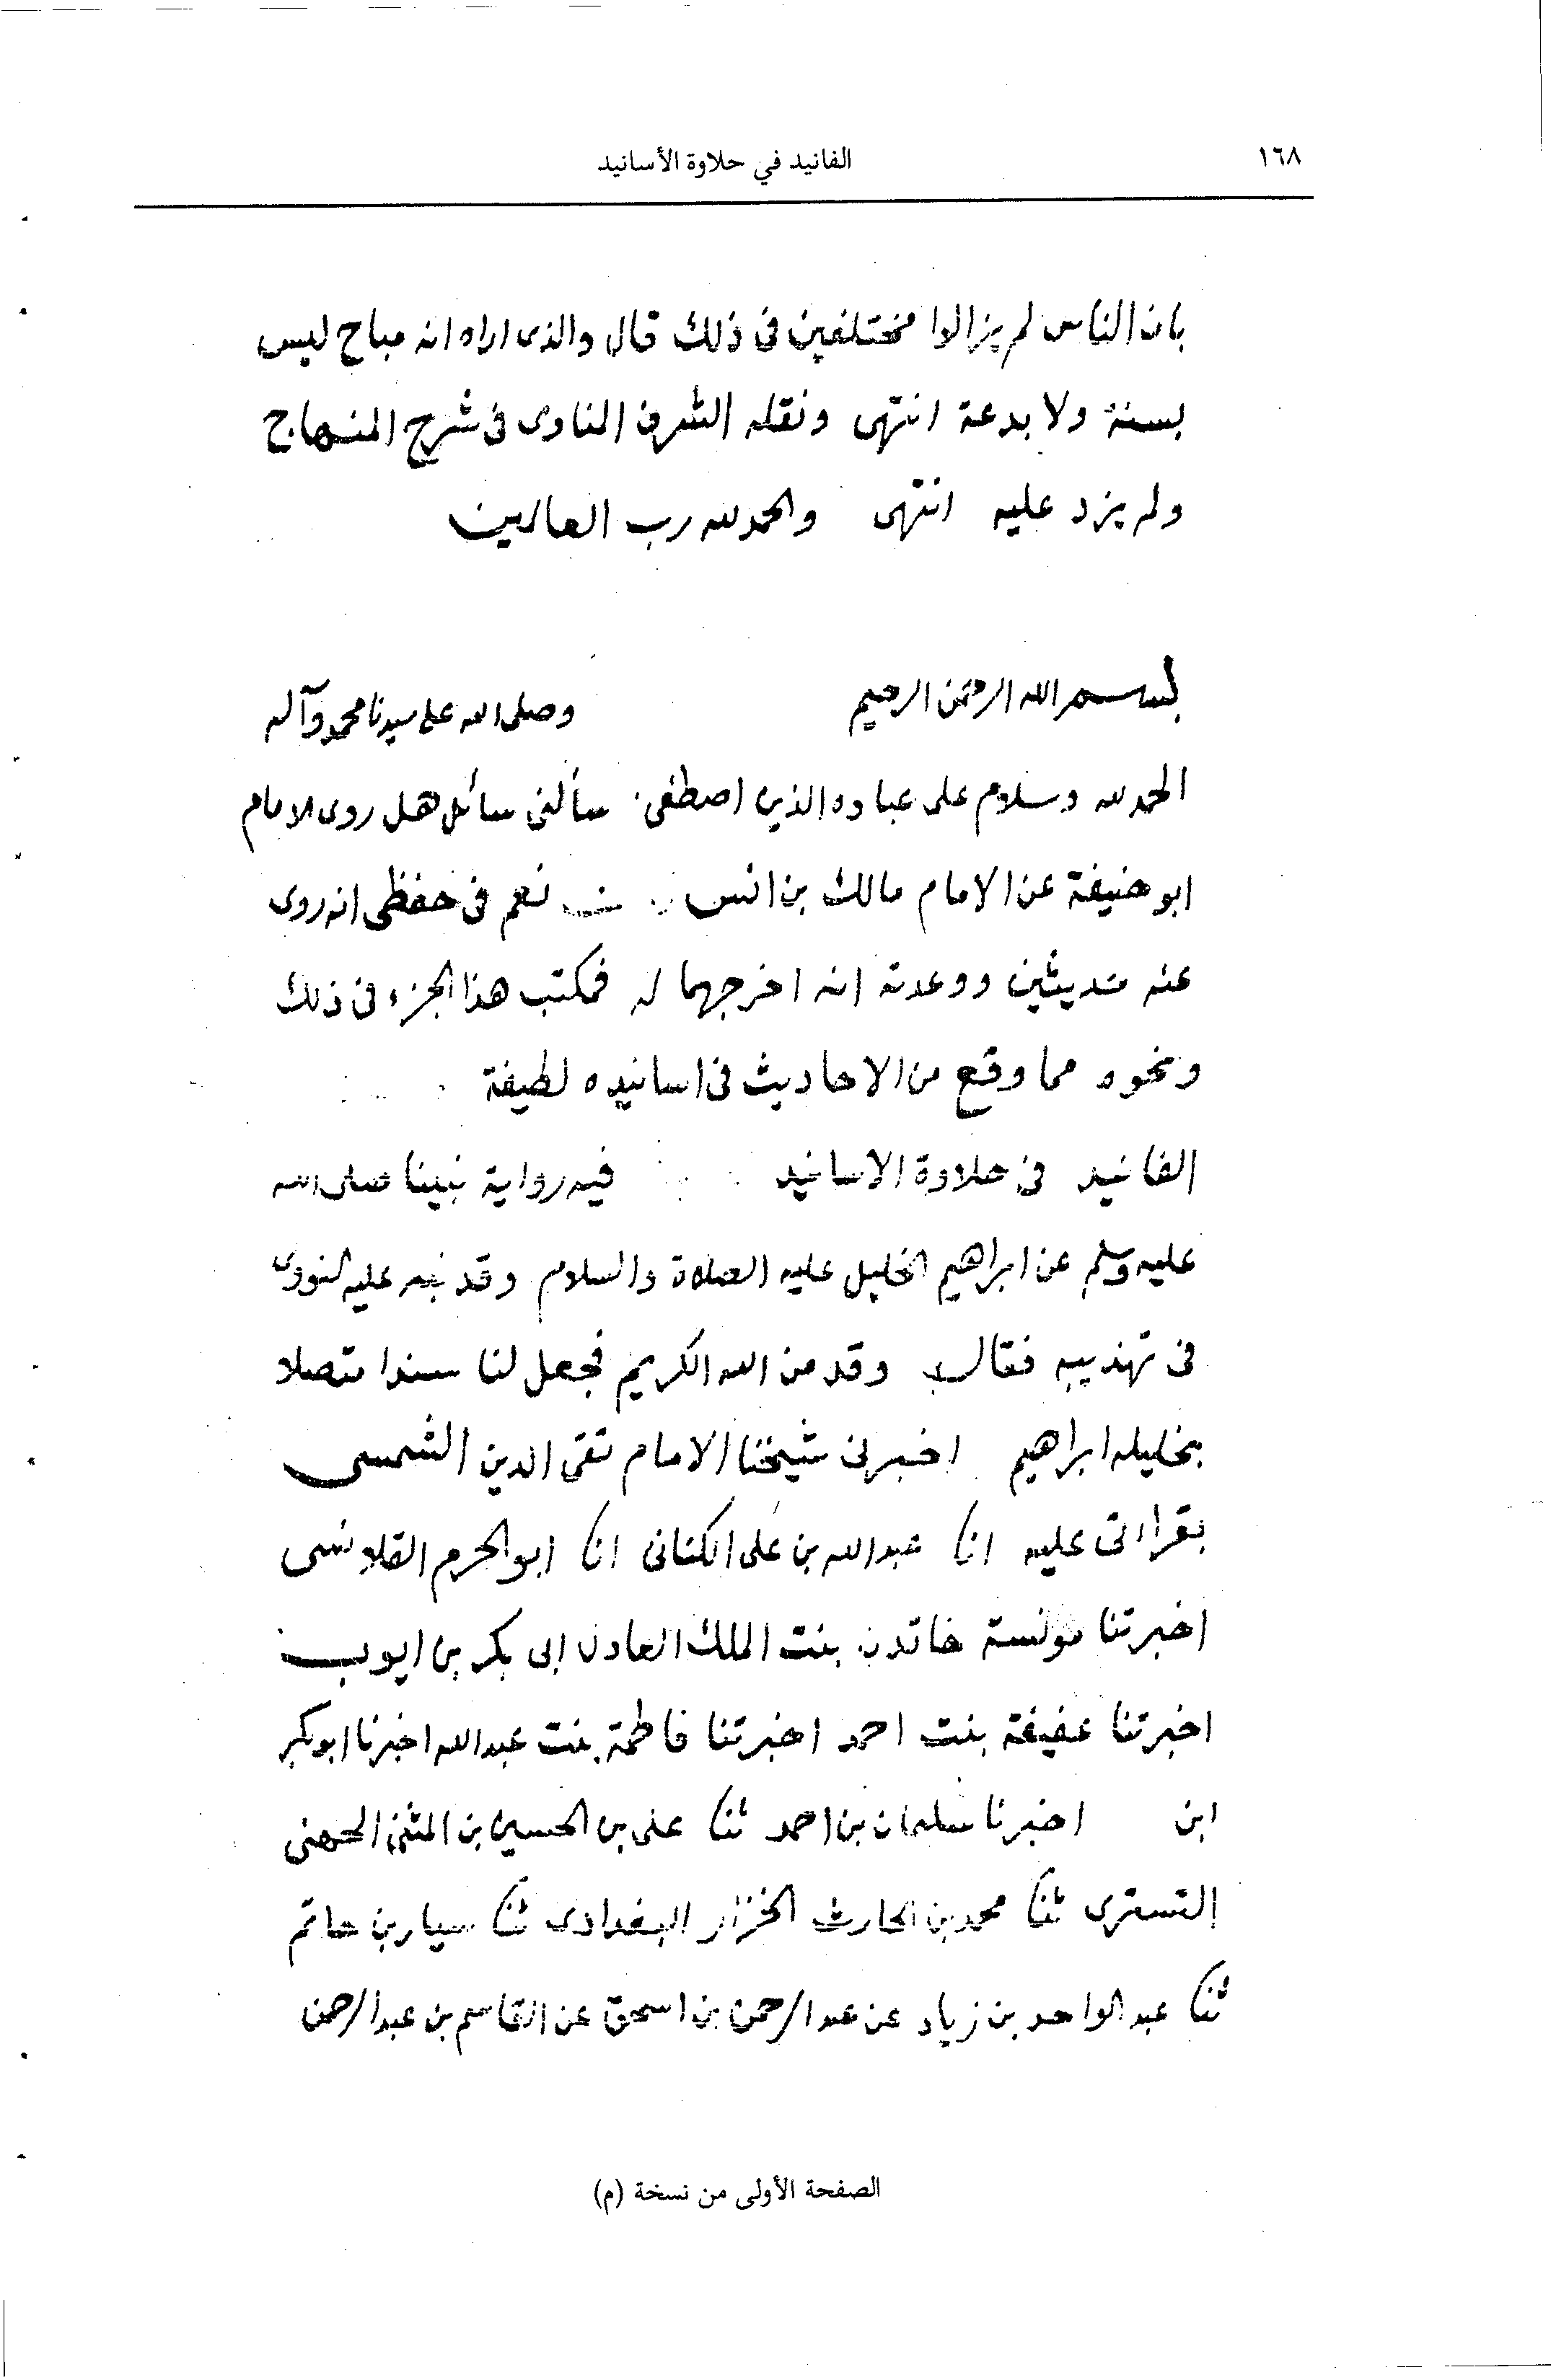 ١٦٨
الفانيد في حلاوة الأسانيد
بان الناس لم يزالوا مختلفين فى ذلك قال والذى اراه انه مباح ليس
بسنة ولا بدعة انتهى ونقله الشرف المناوى فى شرح المنهاج
ولم يزد عليه انتهى والحمد لله رب العالمين
بسم الله الرحمن الرحيم وصلى الله على سيدنا محمد وآله
الحمد لله وسلام على عباده الذين اصطفى سألنى سائل هل روى الامام
ابو حنيفة عن الامام مالك بن انس نعم فى حفظى انه روى
عنه حديثين ووعدته انه اخرجهما له فمكتب هذا الجزء فى ذلك
ونحوه مما وقع من الاحاديث فى اسانيده لطيفة
الفانيد فى حلاوة الاسانيد فيه رواية نبينا صلى الله
عليه وسلم عن ابراهيم الخليل عليه الصلاة والسلام وقد نبه عليه النووى
فى تهذيبه فقال وقد من الله الكريم فجعل لنا سندا متصلا
بخليله ابراهيم اخبرنى شيخنا الامام تقى الدين الشمسى
بقراءتى عليه انا عبد الله بن على الكنانى انا ابو الحرم القلانسى
اخبرتنا مونسة خاتون بنت الملك العادل ابى بكر بن ايوب
اخبرتنا عفيفة بنت احمد اخبرتنا فاطمة بنت عبد الله اخبرنا ابو بكر
ابن اخبرنا سليمان بن احمد ثنا على بن الحسين بن المثنى الجهنى
التسترى ثنا محمد بن الحارث الخزاز البغدادى ثنا سيار بن حاتم
ثنا عبد الواحد بن زياد عن عبد الرحمن بن اسحق عن القاسم بن عبد الرحمن
الصفحة الأولى من نسخة (م)